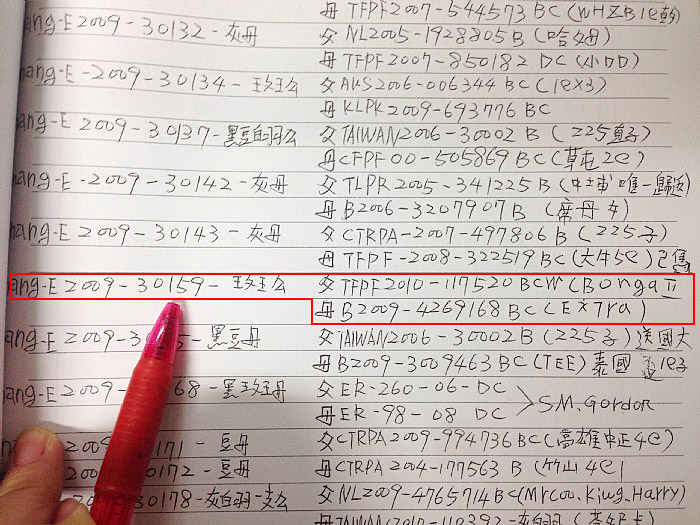 母 TFPF2007-544573 BC (WHZB1e
ang-E 2009-30132-灰母 父 NL2005-1928805 B (哈姆)
母 TFPF 2007-850182 DC (小DD)
ang-E-2009-30134-玫玫公 父 AKS2006-006344 BC (1ex3)
母 KLPK2009-693776 BC
ang-E 2009-30137-黑豆白羽公 父 TAIWAN2006-30002 B (225直子)
母 CFPF00-505869 BC (草屯2e)
ang-E-2009-30142-灰母 父 TLPR2005-341225 B (中埔唯一歸返)
母 B2006-3207907 B (席丹女)
ang-E 2009-30143-灰母 父 CTRPA-2007-497806 B (225子)
母 TFPF-2008-322519 BC (大牛5e)
ang-E 2009-30159-玫玫公 父 TFPF2010-117520 BCW (Bonga II
母 B2009-4269168 BC (Extra)
ang-E 2009-30 5-黑豆母 父 TAIWAN2006-30002 B (225子) 送國大
母 B2009-3009463 BC (TEE) 泰國
ang-E 2009- 68-黑玫玫母 父 ER-260-06-DC
母 ER-98-08 DC > S.M.Gordon
ang-E 200 171-豆母 父 CTRPA2009-994736 BC (高雄中正4e)
172-豆母 母 CTRPA 2004-177563 B (竹山4e)
30178-灰白羽一支公 父 NL2009-4765714 BC (Mrcoo.King.Harry)
母 TAIWAN2010-110392-灰白羽